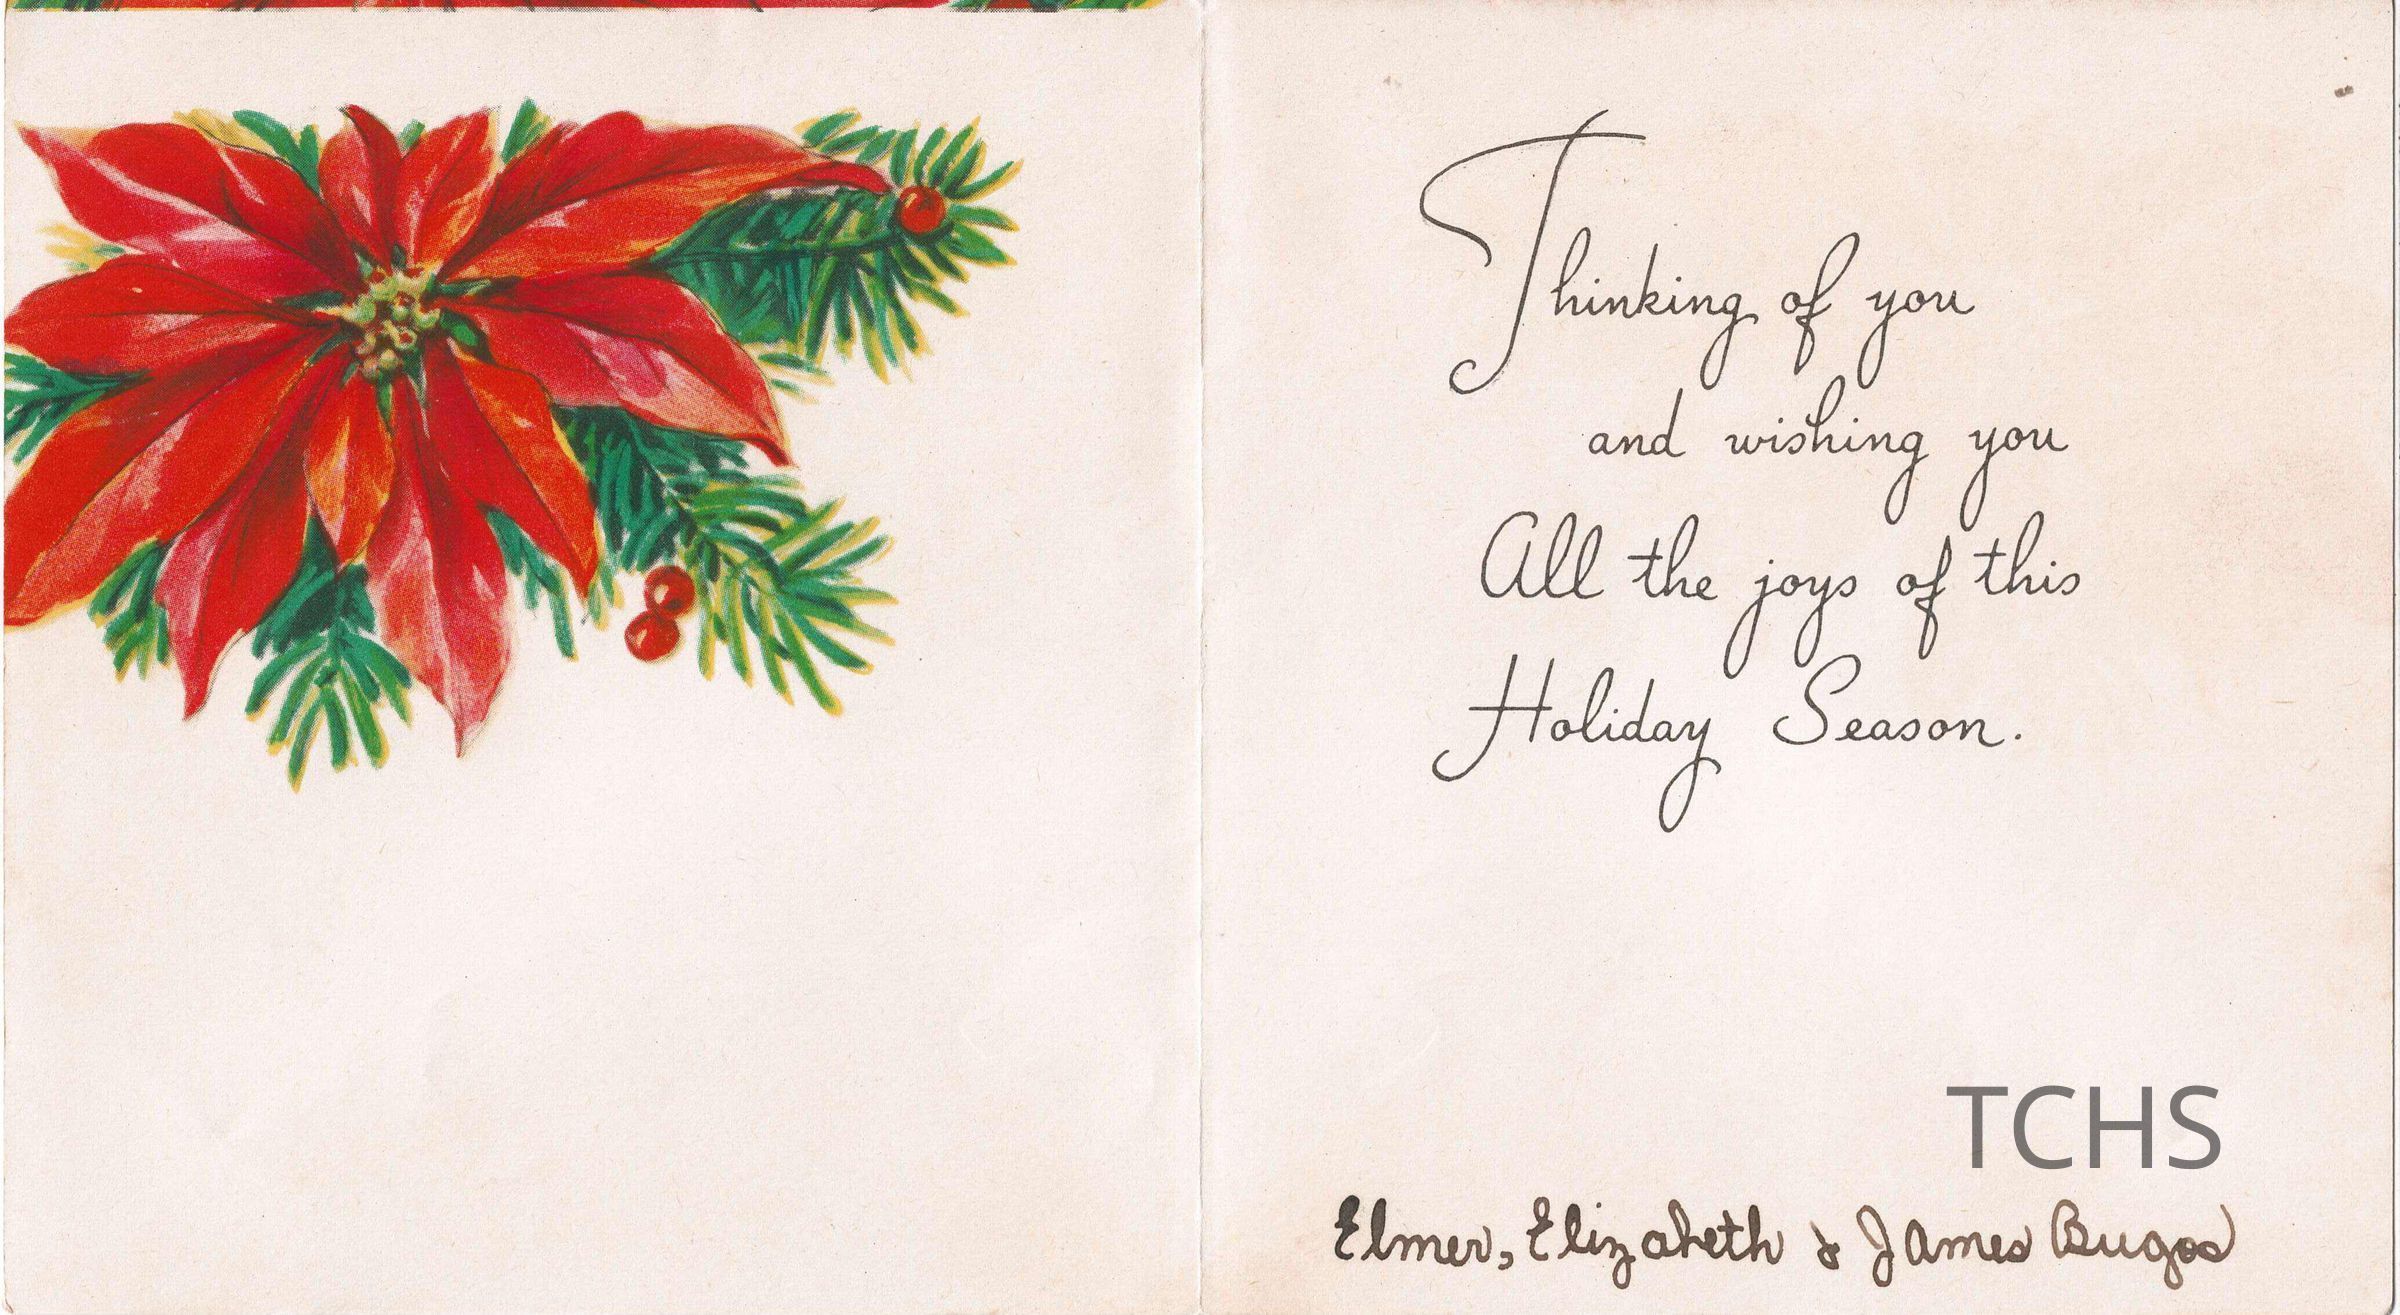 Thinking of you
and wishing you
All the joys of this
Holiday Season.
TCHS
Elmer, Elizabeth & James Bugos